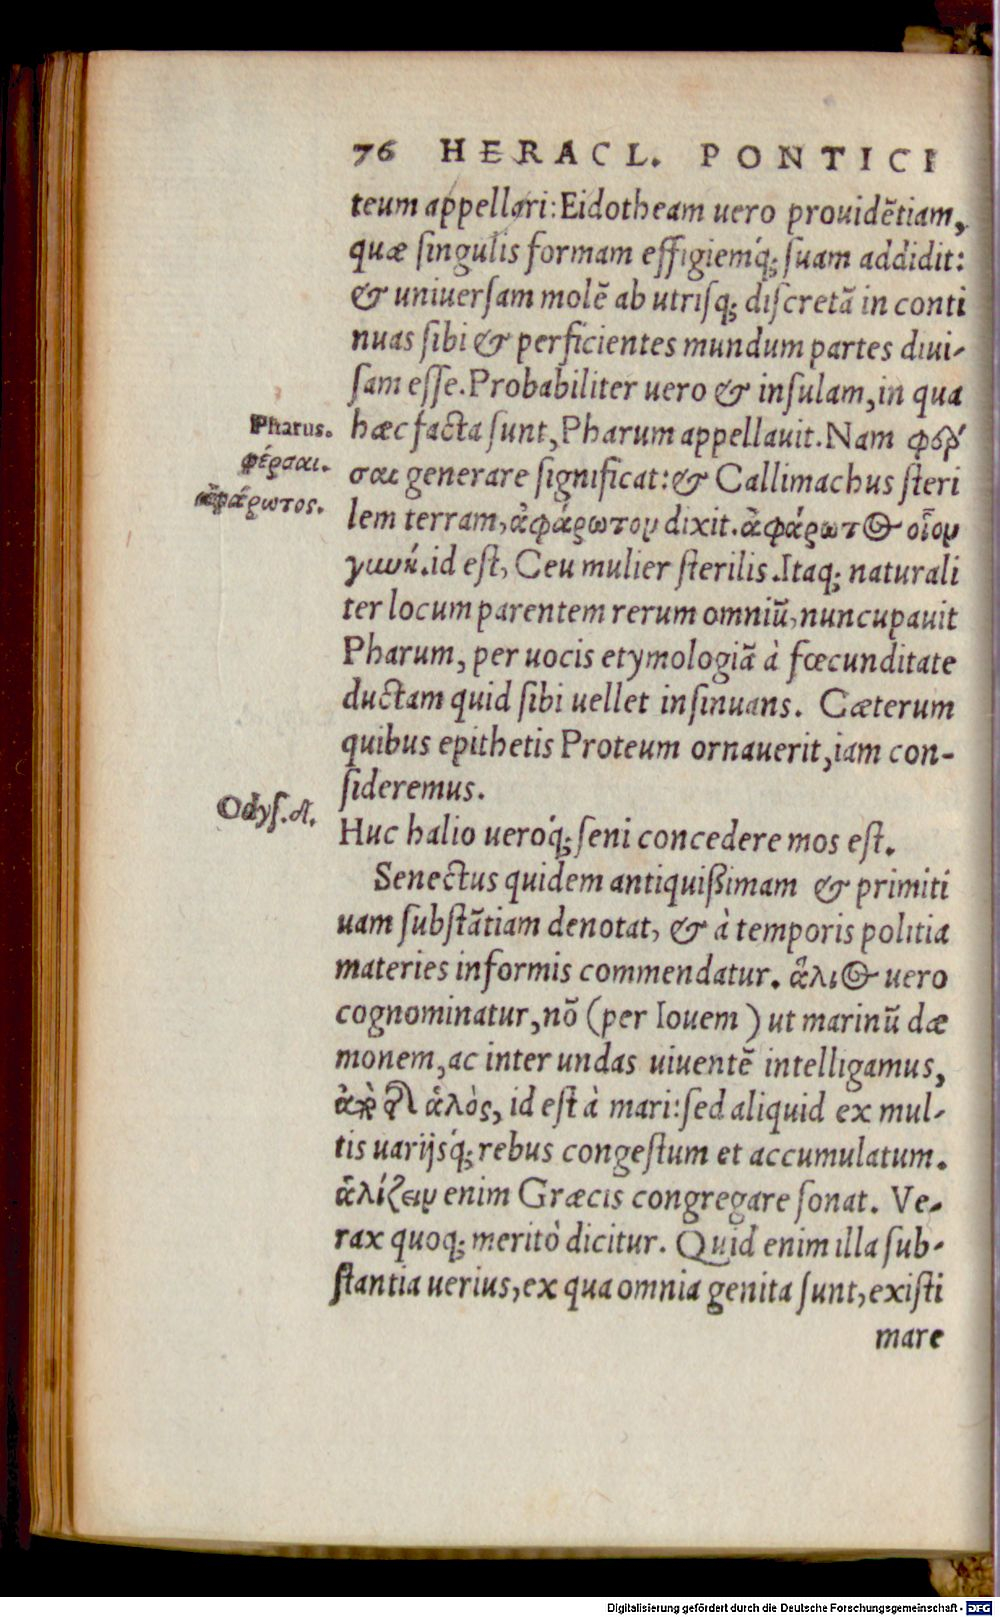 76 HERACL. PONTICI
teum appellari: Eidotheam uero prouidẽtiam,
quæ ſingulis formam effigiemq́; ſuam addidit:
& uniuerſam molẽ ab utriſq; diſcretã in conti
nuas ſibi & perficientes mundum partes diui-
ſam eſſe. Probabiliter uero & inſulam, in qua
Pharus. hæc facta ſunt, Pharum appellauit. Nam φέρ
φέρσαι. σαι generare ſignificat: & Callimachus ſteri
ἀφάρωτος. lem terram, ἀφάρωτον dixit. ἀφάρωτος οἷον
γυνή. id eſt, Ceu mulier ſterilis. Itaq; naturali
ter locum parentem rerum omniũ, nuncupauit
Pharum, per uocis etymologiã à fœcunditate
ductam quid ſibi uellet inſinuans. Cæterum
quibus epithetis Proteum ornauerit, iam con-
ſideremus.
Odyſ. δ. Huc halio ueroq́; ſeni concedere mos eſt.
Senectus quidem antiquißimam & primiti
uam ſubſtãtiam denotat, & à temporis politia
materies informis commendatur. ἅλιος uero
cognominatur, nõ (per Iouem) ut marinũ dæ
monem, ac inter undas uiuentẽ intelligamus,
ἀπὸ τῆς ἁλὸς, id eſt à mari: ſed aliquid ex mul-
tis uarijsq́; rebus congeſtum et accumulatum.
ἁλίζειν enim Græcis congregare ſonat. Ve-
rax quoq; meritò dicitur. Quid enim illa ſub-
ſtantia uerius, ex qua omnia genita ſunt, exiſti
mare
Digitalisierung gefördert durch die Deutsche Forschungsgemeinschaft - DFG